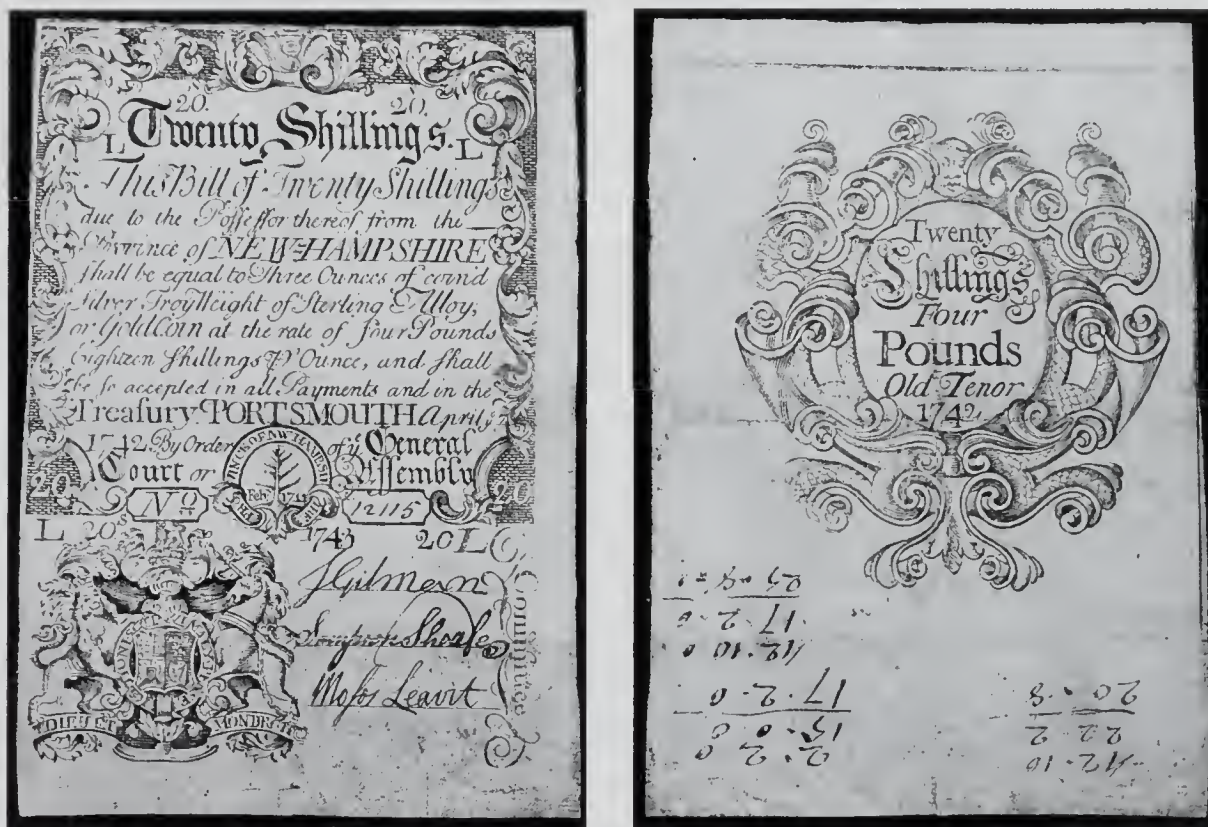 20. 20.
L Twenty Shillings. L
This Bill of Twenty Shillings
due to the Possessor thereof from the
Province of NEW-HAMPSHIRE
shall be equal to Three Ounces of coin'd
Silver, Troy Weight of Sterling Alloy,
or Gold Coin at the rate of four Pounds
Eighteen Shillings P Ounce, and shall
be so accepted in all Payments and in the
Treasury. PORTSMOUTH April
1742. By Order of yͤ General
Court or Assembly
PROVINCE OF NEW HAMPSHIRE
Febr 1711
20 Nº 12115 20
L 20s 1743 20 L
JGilman
Shoafe
Moses Leavit
Committee
HONI SOIT
DIEU ET MON DROIT
Twenty
Shillings
Four
Pounds
Old Tenor
1742
12 . 10 . 0
17 . 2 . 0
2 . 2 . 0
15 . 0 . 0
17 . 2 . 0
12 . 10
22 . 2
20 . 8